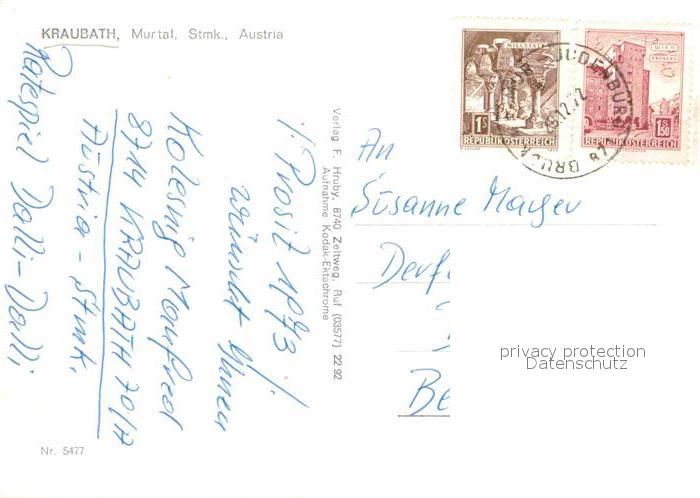 KRAUBATH, Murtal, Stmk., Austria
! Prosit 1973 !
wünscht Ihnen
Kolesnig Manfred
8714 KRAUBATH 70/A
Austria - Stmk.
Ratespiel Dalli-Dalli
Nr. 5477
Verlag F. Hruby, 8740 Zeltweg, Ruf (03577) 22 92
Aufnahme Kodak-Ektachrome
MILLSTATT
1S
REPUBLIK ÖSTERREICH
WIEN
1.50
REPUBLIK ÖSTERREICH
BRUCK
JUDENBURG
An
Susanne Mayer
Be
privacy protection
Datenschutz